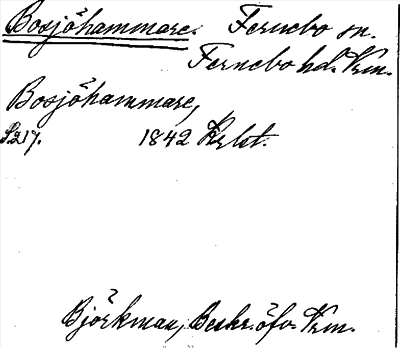 Bosjöhammare. Fernebo sn.
Fernebo hd. Vrm.
Bosjöhammare,
S217. 1842 Krlst.
Björkman, Beskr. öfv. Vrm.